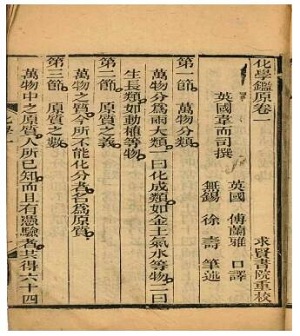 化學鑑原卷一
求賢書院重校
英國 傅蘭雅 口譯
英國韋而司撰
無錫 徐壽 筆述
第一節 萬物分類
萬物分爲兩大類一曰化成類如金土氣水等物二曰
生長類如動植等物
第二節 原質之義
萬物之質今所不能化分者名爲原質
第三節 原質之數
萬物中之原質人所已知而且有憑驗者共得六十四